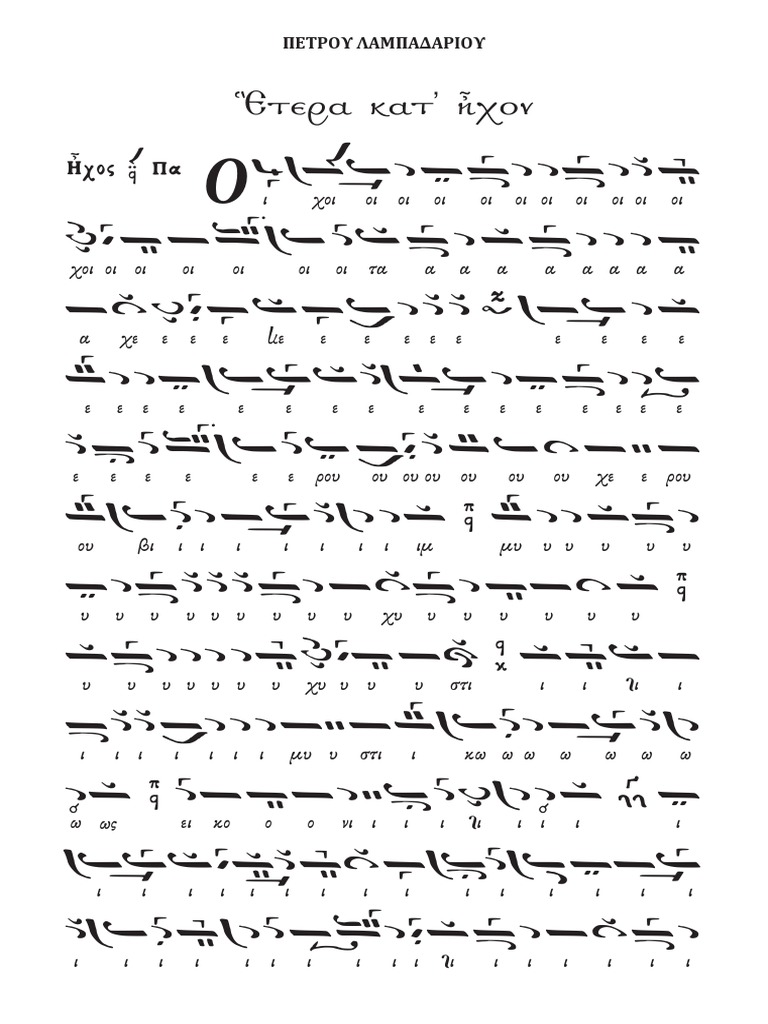 ΠΕΤΡΟΥ ΛΑΜΠΑΔΑΡΙΟΥ
Ἕτερα κατ' ἦχον
Ἦχος π̈ᾳ Πα Ο ι χοι οι οι οι οι οι οι οι οι οι οι
χοι οι οι οι οι οι οι τα α α α α α α α α
α χε ε ε ε κε ε ε ε ε ε ε ε ε ε ε
ε ε ε ε ε ε ε ε ε ε ε ε ε ε ε
ε ε ε ε ε ε ρου ου ου ου ου ου ου χε ε ρου
ου βι ι ι ι ι ι ι ι ιμ μυ υ υ υ υ υ
υ υ υ υ υ υ υ υ χυ υ υ υ υ υ υ
υ υ υ υ υ υ υ χυ υ υ υ στι ι ι λι ι
ι ι ι ι ι ι ι μυ υ στι ι κω ω ω ω ω ω ω
ω ως ει κο ο ο νι ι ι ι λι ι ι ι ι
ι ι ι ι ι ι ι ι ι ι ι ι ι ι ι
ι ι ι ι ι ι ι ι ι ι λι ι ι ι ι ι ι